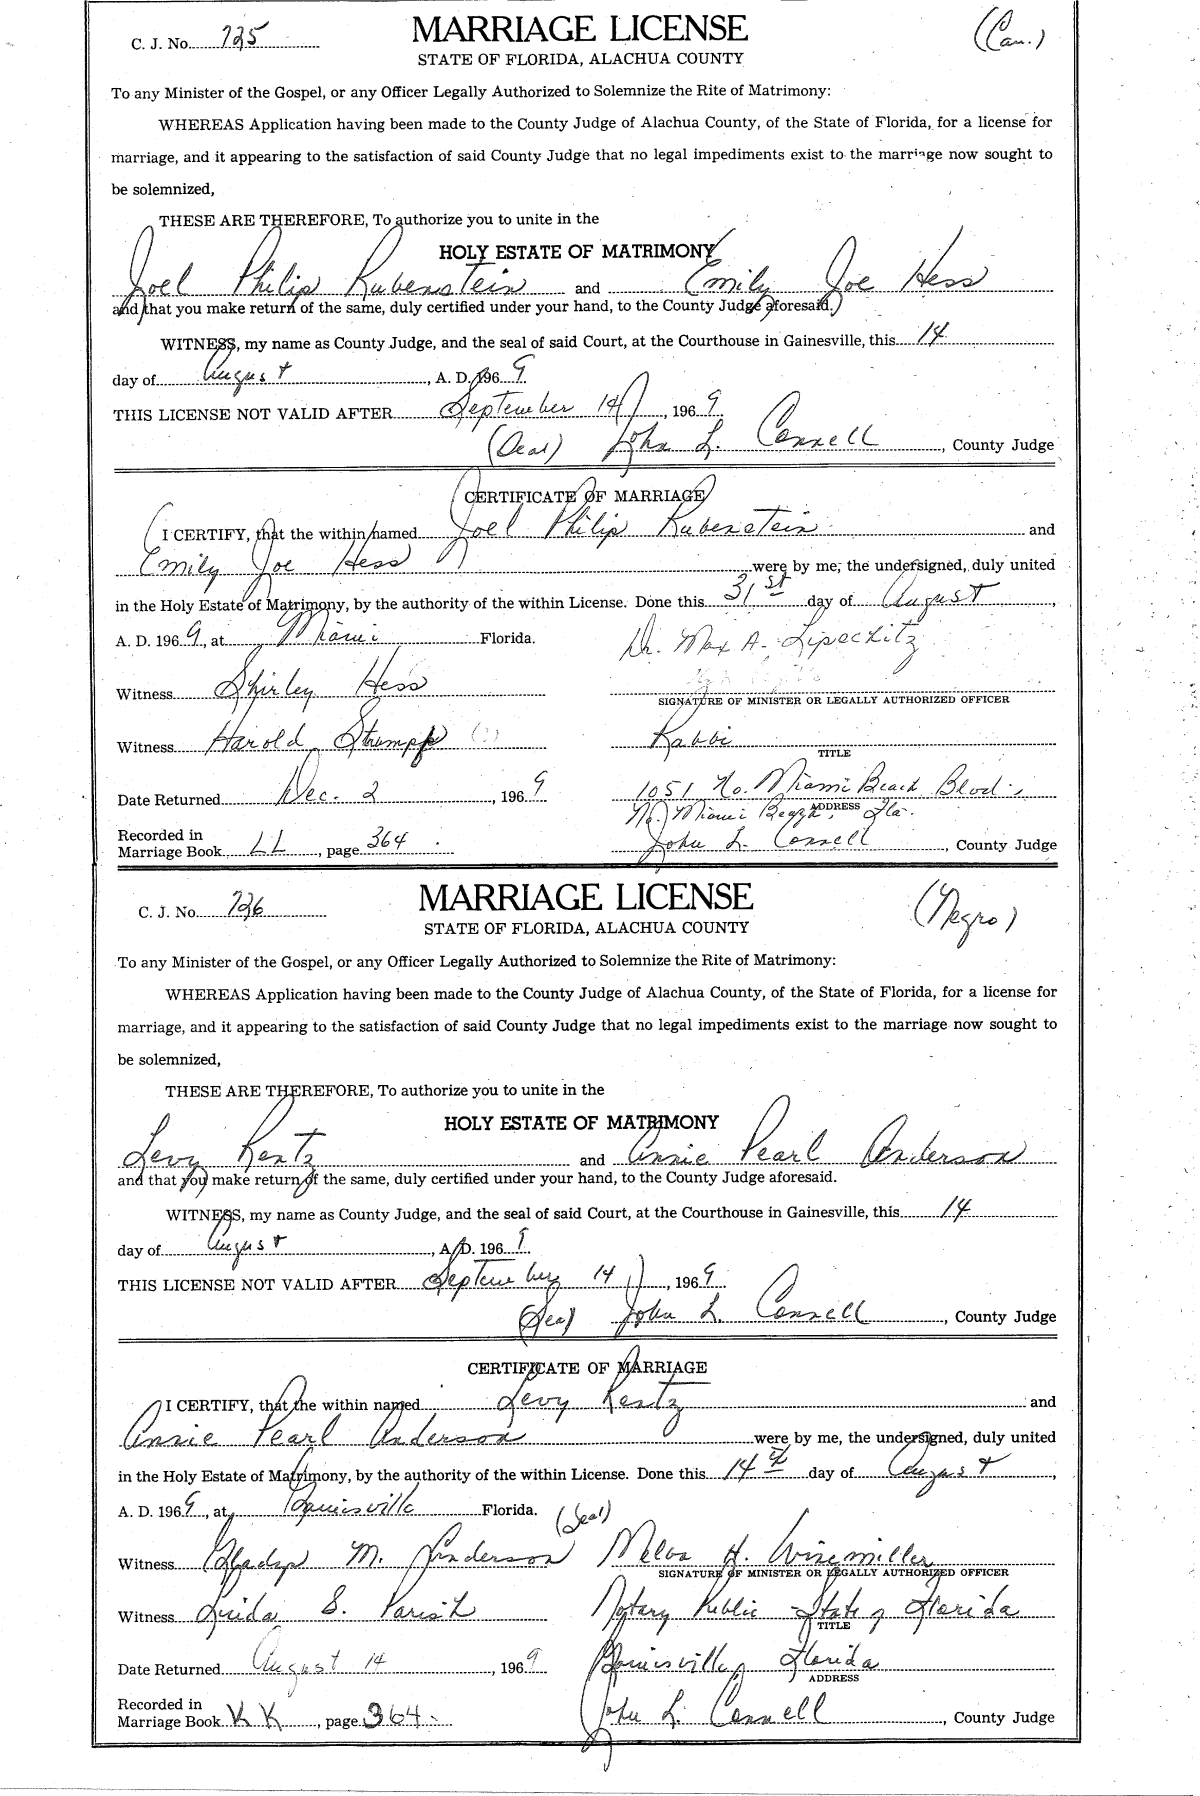 C. J. No. 725
MARRIAGE LICENSE
(Cau.)
STATE OF FLORIDA, ALACHUA COUNTY
To any Minister of the Gospel, or any Officer Legally Authorized to Solemnize the Rite of Matrimony:
WHEREAS Application having been made to the County Judge of Alachua County, of the State of Florida, for a license for
marriage, and it appearing to the satisfaction of said County Judge that no legal impediments exist to the marriage now sought to
be solemnized,
THESE ARE THEREFORE, To authorize you to unite in the
HOLY ESTATE OF MATRIMONY
Joel Philip Rubenstein and Emily Joe Hess
and that you make return of the same, duly certified under your hand, to the County Judge aforesaid.
WITNESS, my name as County Judge, and the seal of said Court, at the Courthouse in Gainesville, this 14
day of August, A. D. 1969
THIS LICENSE NOT VALID AFTER September 14, 1969
(Seal) John L. Connell, County Judge
CERTIFICATE OF MARRIAGE
I CERTIFY, that the within named Joel Philip Rubenstein and
Emily Joe Hess were by me, the undersigned, duly united
in the Holy Estate of Matrimony, by the authority of the within License. Done this 31st day of August,
A. D. 1969, at Miami Florida. Dr. Max A. Lipschitz
Witness Shirley Hess
SIGNATURE OF MINISTER OR LEGALLY AUTHORIZED OFFICER
Witness Harold Strumpf Rabbi
TITLE
Date Returned Dec. 2, 1969 1051 No. Miami Beach Blvd.,
ADDRESS
No. Miami Beach, Fla.
Recorded in
Marriage Book LL, page 364. John L. Connell, County Judge
C. J. No. 726
MARRIAGE LICENSE
(Negro)
STATE OF FLORIDA, ALACHUA COUNTY
To any Minister of the Gospel, or any Officer Legally Authorized to Solemnize the Rite of Matrimony:
WHEREAS Application having been made to the County Judge of Alachua County, of the State of Florida, for a license for
marriage, and it appearing to the satisfaction of said County Judge that no legal impediments exist to the marriage now sought to
be solemnized,
THESE ARE THEREFORE, To authorize you to unite in the
HOLY ESTATE OF MATRIMONY
Levy Rentz and Annie Pearl Anderson
and that you make return of the same, duly certified under your hand, to the County Judge aforesaid.
WITNESS, my name as County Judge, and the seal of said Court, at the Courthouse in Gainesville, this 14
day of August, A. D. 1969
THIS LICENSE NOT VALID AFTER September 14, 1969
(Seal) John L. Connell, County Judge
CERTIFICATE OF MARRIAGE
I CERTIFY, that the within named Levy Rentz and
Annie Pearl Anderson were by me, the undersigned, duly united
in the Holy Estate of Matrimony, by the authority of the within License. Done this 14th day of August,
A. D. 1969, at Gainesville Florida. (Seal)
Witness Gladys M. Anderson Melva H. Winemiller
SIGNATURE OF MINISTER OR LEGALLY AUTHORIZED OFFICER
Witness Linda S. Parish Notary Public State of Florida
TITLE
Date Returned August 14, 1969 Gainesville, Florida
ADDRESS
Recorded in
Marriage Book KK, page 364. John L. Connell, County Judge